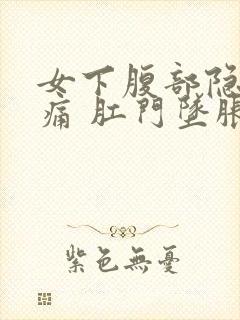 女下腹部隐
痛 肛門墜脹
紫色無憂